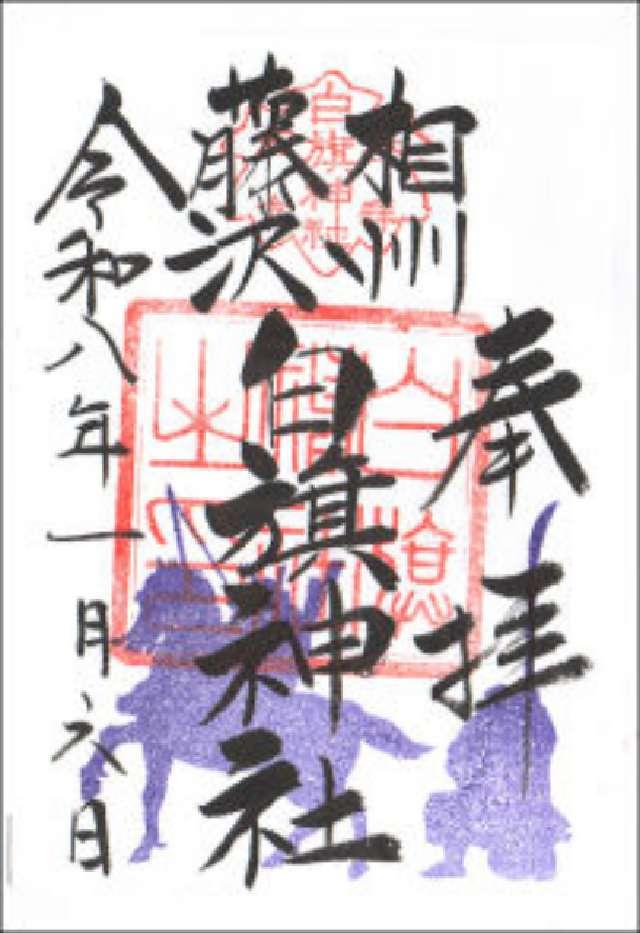 奉拝
相州
藤沢
白旗神社
令和八年一月六日
白旗
神社